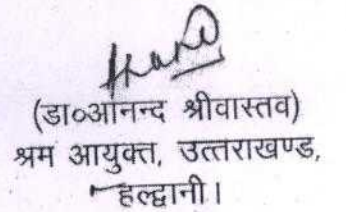 (डा०आनन्द श्रीवास्तव)
श्रम आयुक्त, उत्तराखण्ड,
हल्द्वानी।